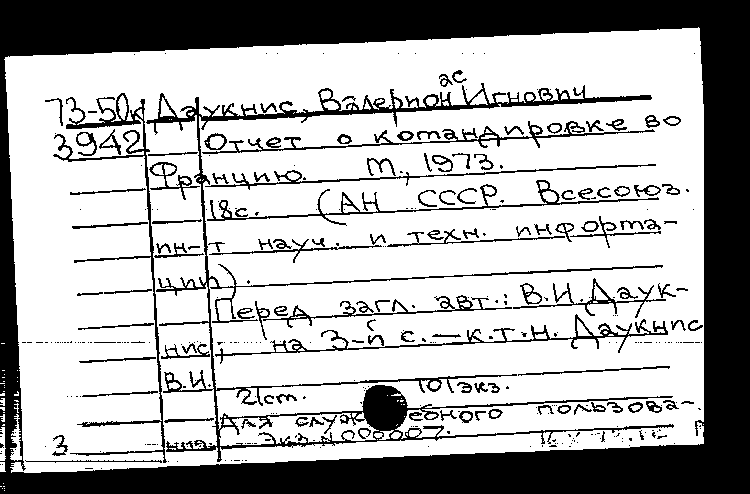 73-50к Даукнис, Валерион Игнович
ас
3942 Отчет о командировке во
Францию. М., 1973.
18с. (АН СССР. Всесоюз.
ин-т науч. и техн. информа-
ции).
Перед загл. авт.: В.И. Даук-
нис; на 3-й с. — к.т.н. Даукнис
В.И.
21cm. 101экз.
Для служебного пользова-
ния. Экз. N 000007.
3